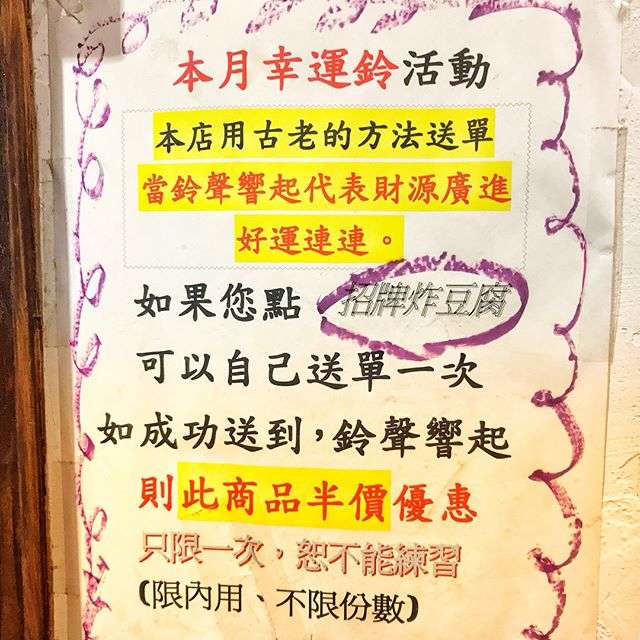 本月幸運鈴活動
本店用古老的方法送單
當鈴聲響起代表財源廣進
好運連連。
如果您點 招牌炸豆腐
可以自己送單一次
如成功送到，鈴聲響起
則此商品半價優惠
只限一次，恕不能練習
(限內用、不限份數)